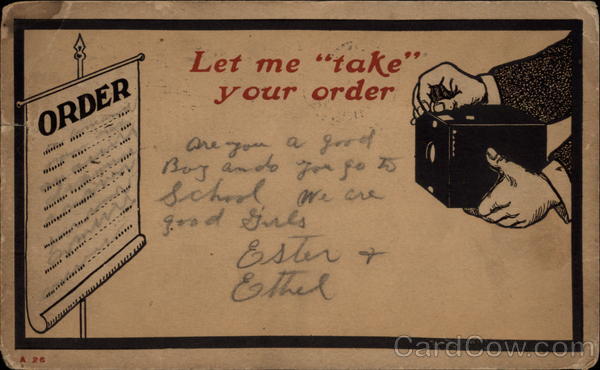 Let me "take"
your order
ORDER
Are you a good
Boy and do you go to
School, We are
good Girls
Ester +
Ethel
A 26
CardCow.com